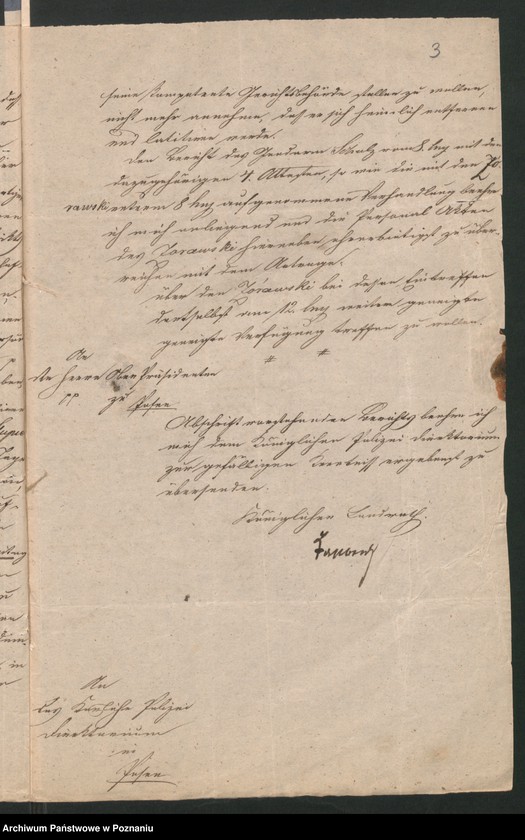 3
seine kompetente Gerichtsbehörde stellen zu wollen,
nicht mehr annehmen, daß er sich heimlich entfernen
und latitiren werde.
Den Bericht des Gendarm Scholz vom 8 huj mit den
dazugehörigen 4. Attesten, so wie die mit dem Zo-
rawski unterm 8 huj aufgenommene Verhandlung beehre
ich mich anliegend und die Personal Akten
des Zorawski hierneben ehrerbietigst zu über-
reichen mit dem Antrage.
über den Zorawski bei dessen Eintreffen
dortselbst am huj weitere geneigte
geneigte Verfügung treffen zu wollen.
An
Herrn Ober Präsidenten
pp zu Posen
Abschrift vorstehenden Berichts beehre ich
mich dem Königlichen Polizei Direktorium
zur gefälligen Kenntniß ergebenst zu
übersenden.
Königlicher Landrath.
An
Königliche Polizei
Direktorium
in
Posen
Archiwum Państwowe w Poznaniu